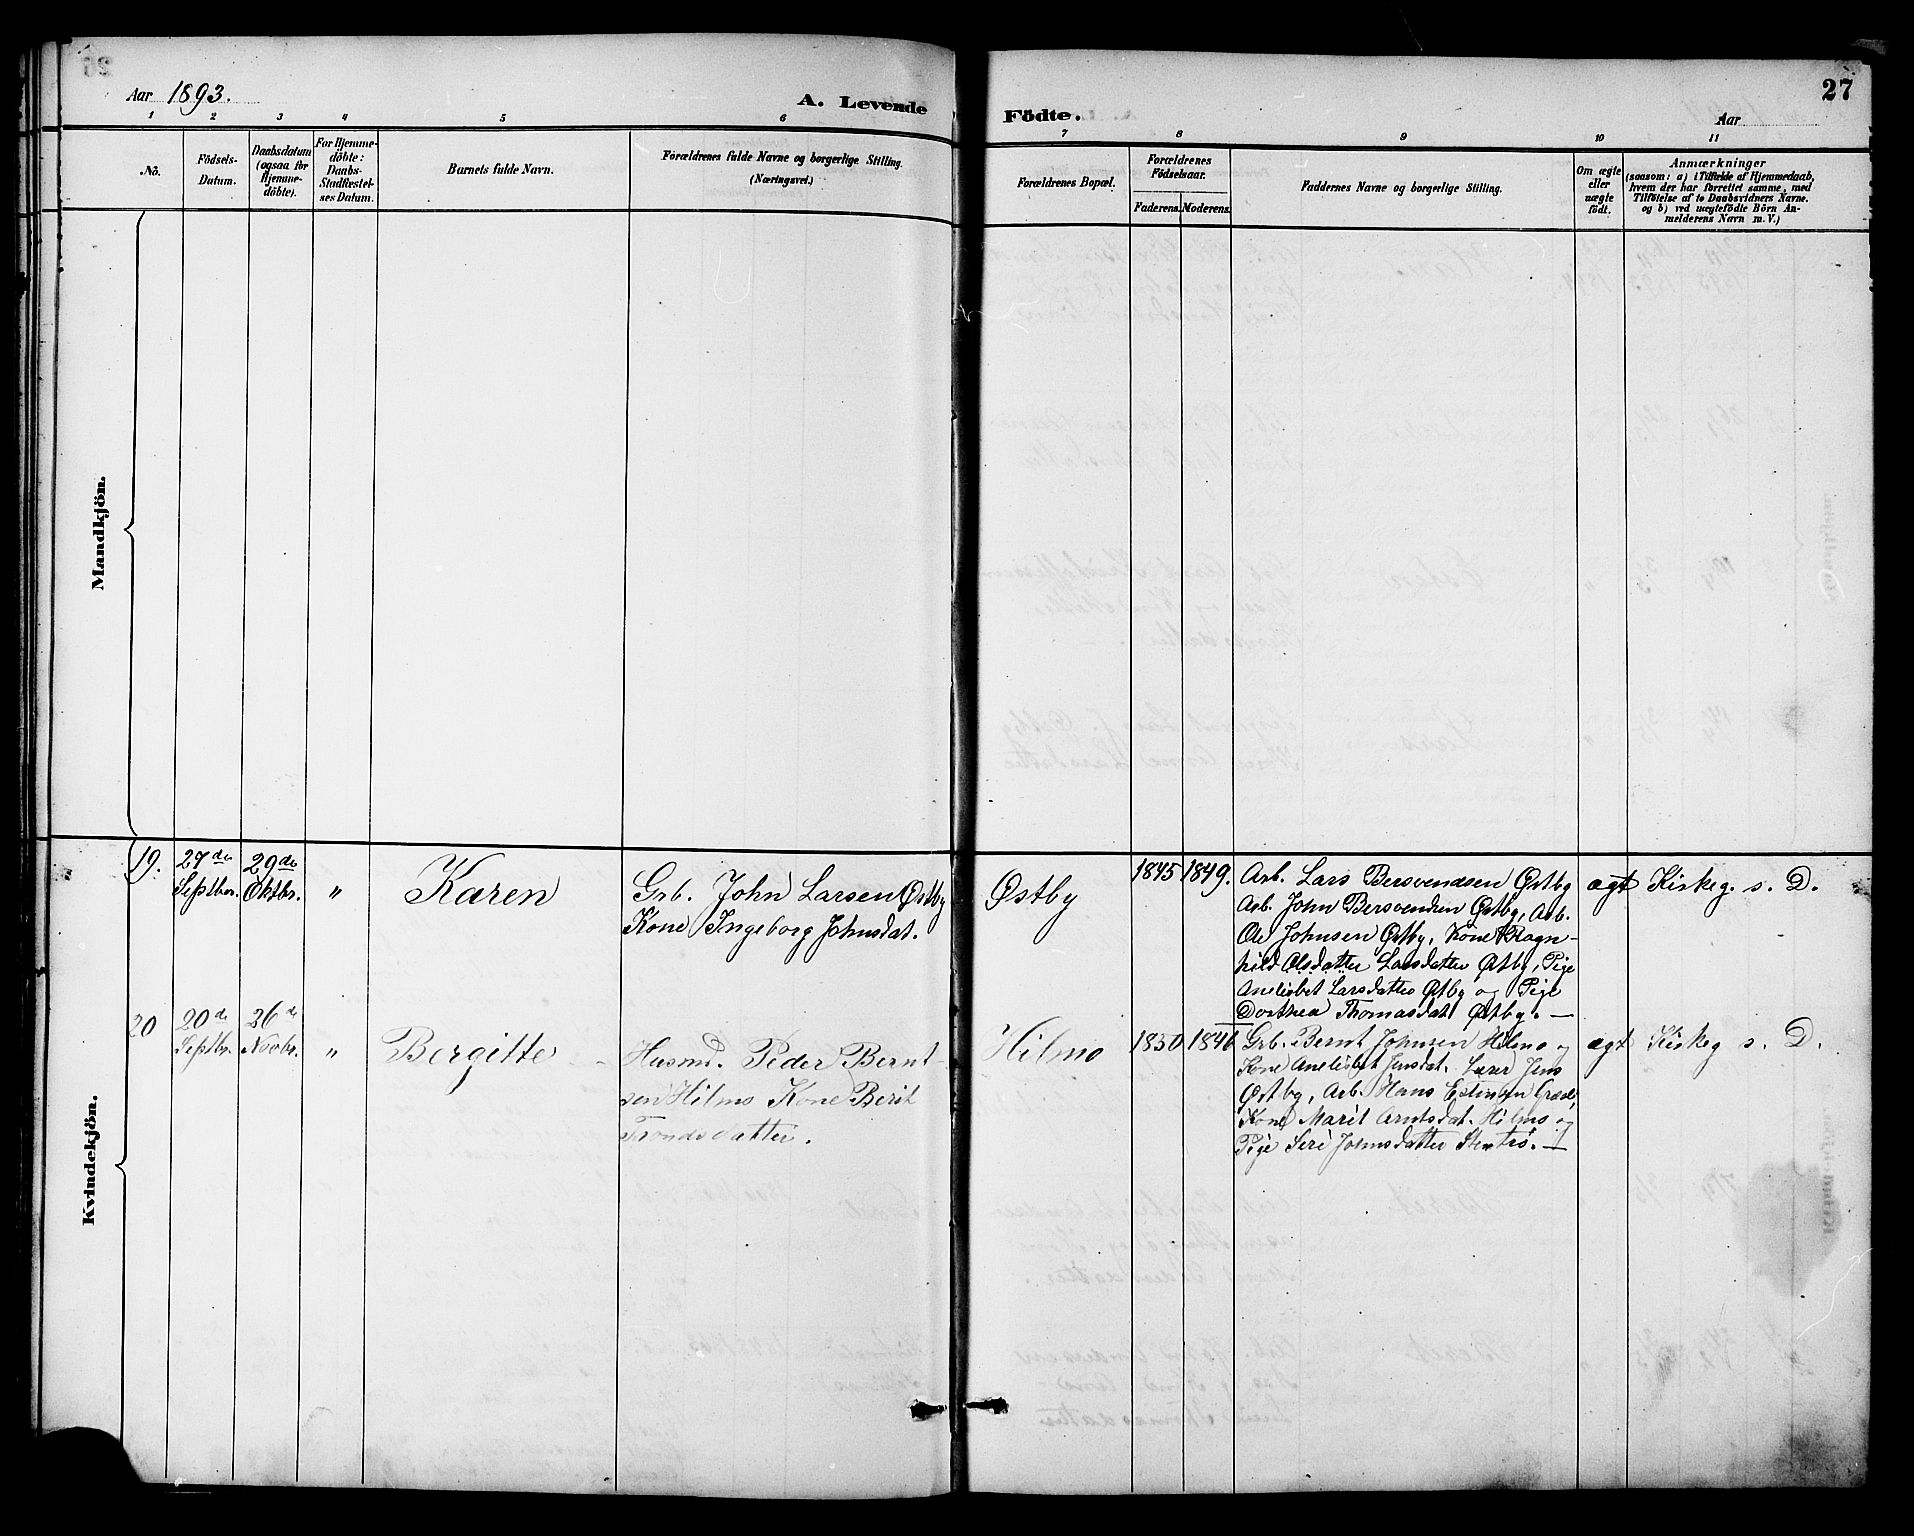 Aar 1893.
A. Levende
Födte.
Aar
27
1
2
3
4
5
6
7
8
9
10
11
No.
Födsels-
Datum.
Daabsdatum
(ogsaa for
Hjemme-
döbte).
For Hjemme-
döbte:
Daabs-
Stadfæstel-
ses Datum.
Barnets fulde Navn.
Forældrenes fulde Navne og borgerlige Stilling.
(Næringsvei.)
Forældrenes Bopæl.
Forældrenes
Födselsaar.
Faderens.
Moderens.
Faddernes Navne og borgerlige Stilling.
Om ægte
eller
uægte
födt.
Anmærkninger
(saasom: a) i Tilfælde af Hjemmedaab,
hvem der har forrettet samme, med
Tilföielse af to Daabsvidners Navne.
og b) ved uægtefödte Börn An-
melderens Navn m.V.)
Mandkjön.
Kvindekjön.
19.
27de
Septbr.
29de
Oktbr.
"
Karen
Grb. John Larsen Østby
Kone Ingeborg Johnsdat.
Østby
1845
1849.
Arb. Lars Bersvendsen Østby
Arb. John Bersvendsen Østby, Arb.
Ole Johnsen Østby, Kone Ragn-
hild Olsdatter Larsdatter Østby, Pige
Anelisbet Larsdatter Østby og Pige
Dorthea Thomasdat. Østby. —
ægt
Kirkeg. s. D.
20
20de
Septbr.
26de
Novbr.
"
Bergitte
Husmd. Peder Bernt-
sen Hilmo Kone Berit
Trondsdatter.
Hilmo
1850
1846
Grb. Bernt Johnsen Hilmo og
Kone Anelisbet Jensdat. Lærer Jens
Østby, Arb. Hans Estensen
Kone Marit Arntsdat. Hilmo og
Pige Seri Johnsdatter Stentrø. —
ægt
Kirkeg s. D.